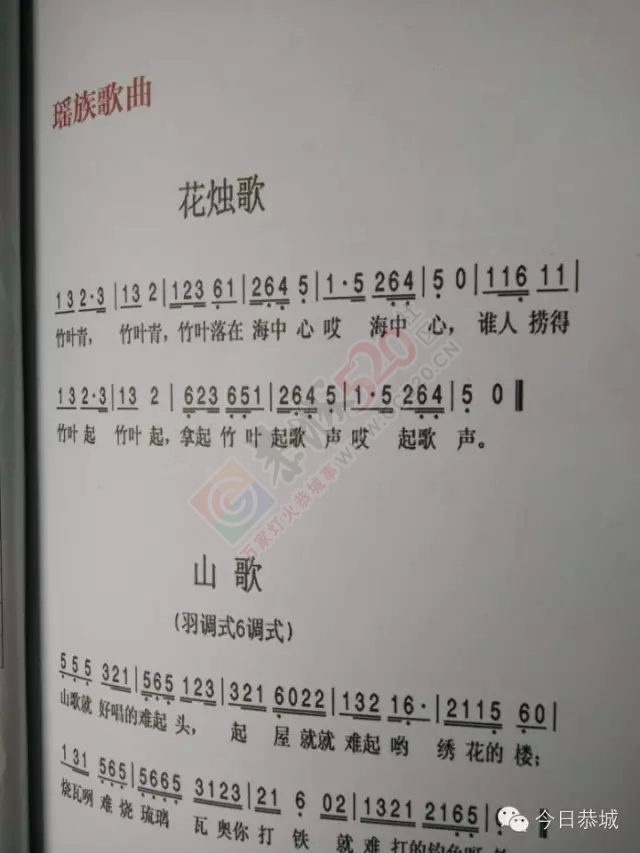 瑶族歌曲
花烛歌
132·3|132|123 61|264 5|1·5 264|5 0|116 11|
竹叶青， 竹叶青，竹叶落在 海中 心 哎 海中 心， 谁人 捞得
132·3|132|623 651|264 5|1·5 264|5 0‖
竹叶 起 竹叶 起，拿起 竹 叶 起歌 声 哎 起歌 声。
山歌
(羽调式6调式)
555 321|565 123|321 6022|132 16·|2115 60|
山歌就 好唱的难起 头， 起 屋 就就 难起 哟 绣 花的 楼；
131 565|5665 3123|21 6 02|1321 2165|
烧瓦咧 难 烧 琉璃 瓦 奥你 打 铁 就 难 打的
恭城520社区
万家灯火恭城事
今日恭城